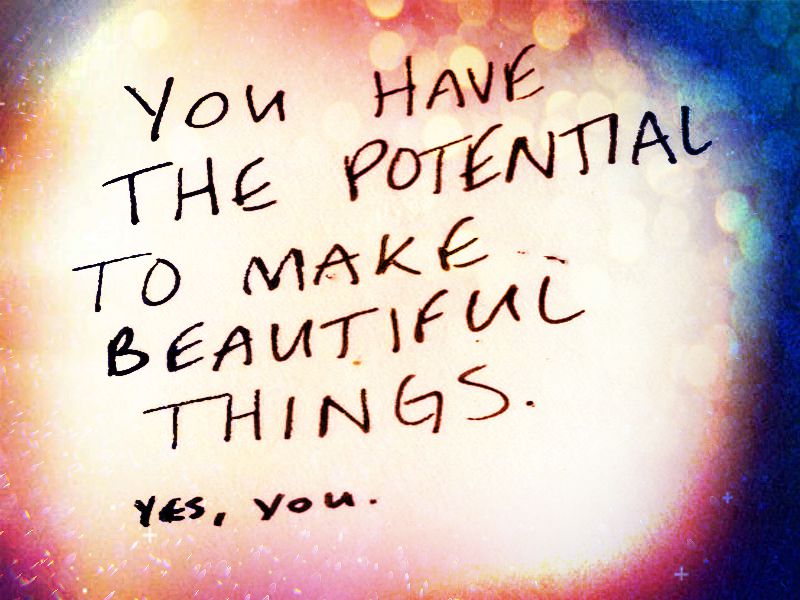 YOU HAVE
THE POTENTIAL
TO MAKE
BEAUTIFUL
THINGS.
YES, YOU.